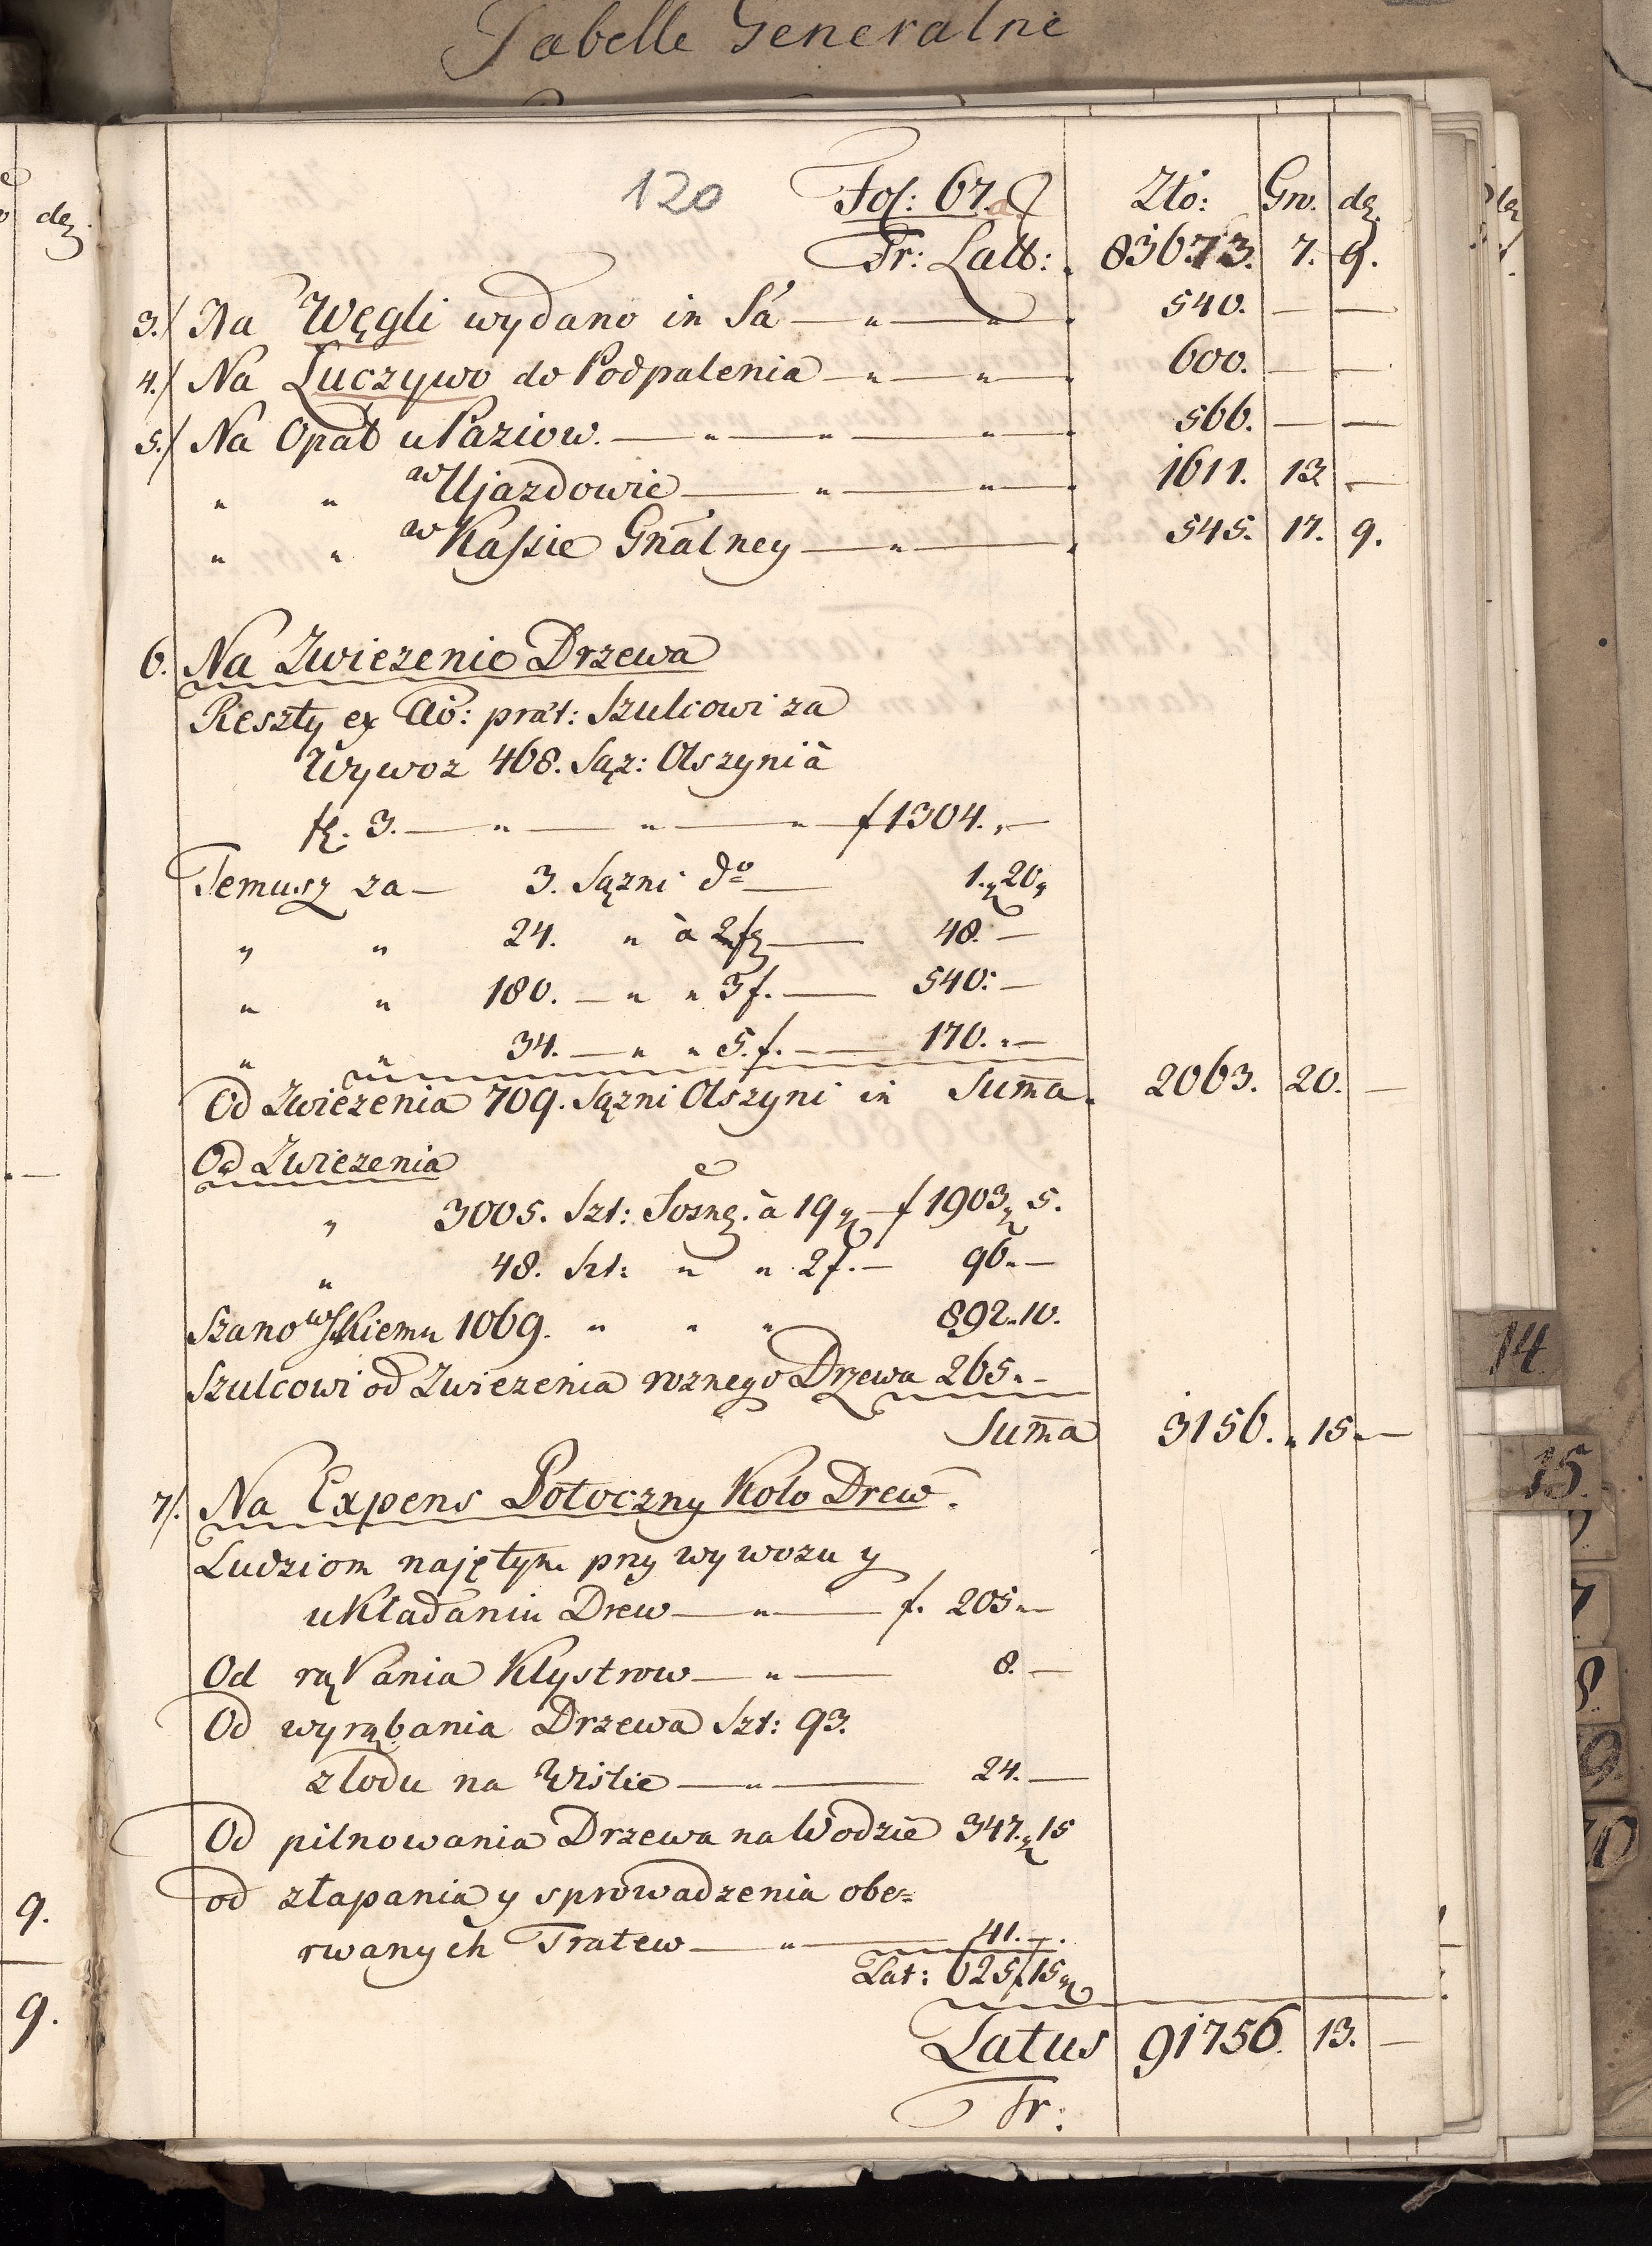 Tabelle Generalne
120 Fol: 67. Złó: Gr. de.
Tr: Latt: 83673. 7. 9.
3./ Na Węgli wydano in Sa — „ — „ — 540. — —
4./ Na Łuczywo do Podpalenia — „ — „ — 600. — —
5./ Na Opał u Paziow. — „ — „ — „ — 566. — —
„ „ w Ujazdowie — „ — „ — 1611. 13 —
„ „ w Kassie Gnalney — „ — 545. 17. 9.
6. Na Zwiezenie Drzewa
Reszty ex Ao: prat: Szulcowi za
Wywoz 468. Sąz: Olszynià
fl. 3. — „ — „ — „ — f 1304. „ —
Temusz za — 3. Sązni do — 1. „ 20 „
„ „ 24. „ à 2 f — 48. —
„ „ 180. — „ „ 3 f. — 540: —
„ „ 34. — „ „ 5. f. — 170. „ —
Od Zwiezenia 709. Sązni Olszyni in Suma. 2063. 20. —
Od Zwiezenia
„ 3005. Szt: Sosne. à 19 — f 1903 „ 5.
„ 48. Szt: „ „ 2 f. — 96. „ —
Szanowskiemu 1069. „ „ „ 892. „ 10.
Szulcowi od Zwiezenia roznego Drzewa 265. „ —
Suma 3156. „ 15. —
7/. Na Expens Potoczny Koło Drew.
Ludziom najętym przy wywozu y
układaniu Drew — „ — f. 205 „ —
Od rąbania Klystrow — „ — 8. —
Od wyrąbania Drzewa Szt: 93.
z lodu na Wisłie — „ — 24. —
Od pilnowania Drzewa na Wodzie 347. „ 15
od złapania y sprowadzenia obe=
rwanych Tratew — „ — 41. — .
Lat: 625 f 15
Latus 91756. 13. —
Tr:
14
15.
7
8.
9.
10
de.
9.
9.